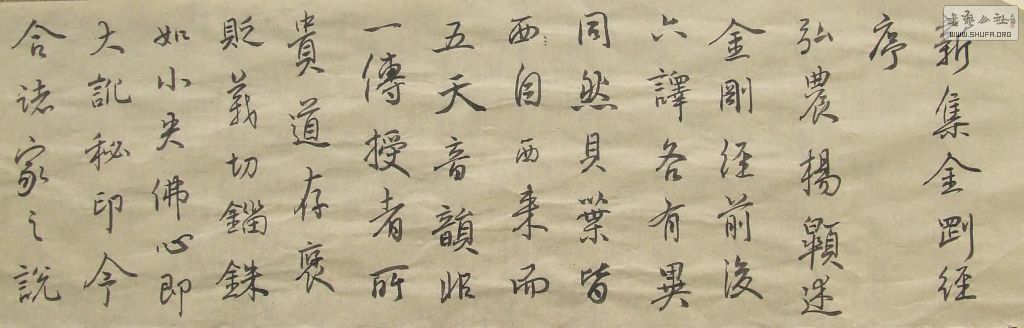 新集金剛經
序
弘農楊顥述
金剛經前後
六譯各有異
同然貝葉皆
西自西来而
五天音韻非
一傳授者所
貴道存褒
貶義切錙銖
如小失佛心即
大訛秘印今
合諸家之說
書藝公社
WWW.SHUFA.ORG